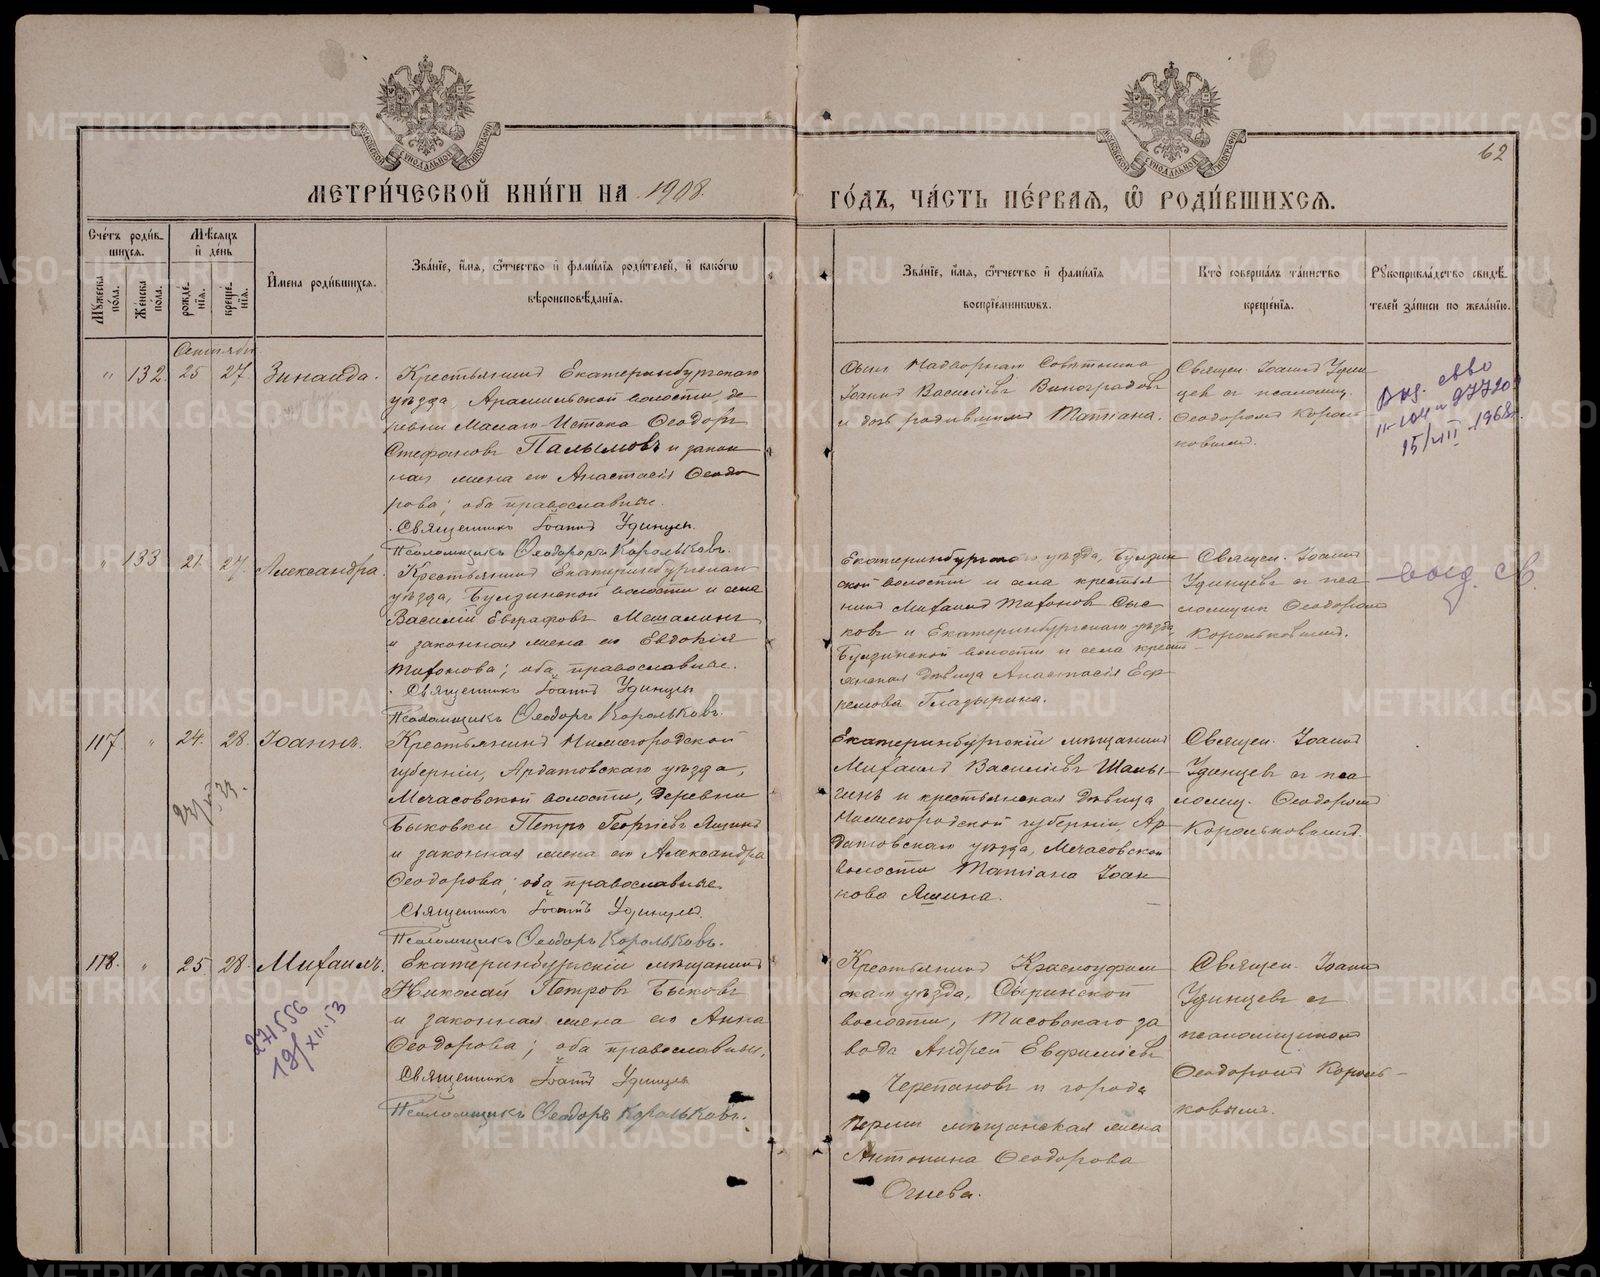 МЕТРИ́ЧЕСКОЙ КНИ́ГИ НА 1908.
ГО́ДЪ, ЧА́СТЬ ПЕ́РВАѦ, Ѡ҆ РОДИ́ВШИХСѦ.
62
Сче́тъ роди́вшихсѧ.
Мꙋ́жеска по́ла.
Же́нска по́ла.
Мѣ́сѧцъ и҆ де́нь
рожде́нїѧ.
креще́нїѧ.
И҆мена роди́вшихсѧ.
Зва́нїе, и҆́мѧ, ѻ҆́тчество и҆ фами́лїѧ роди́телей, и҆ како́гѡ
вѣроисповѣ́данїѧ.
Зва́нїе, и҆́мѧ, ѻ҆́тчество и҆ фами́лїѧ
воспрїе́мникѡвъ.
Кто̀ соверша́лъ та́инство
креще́нїѧ.
Рꙋкоприкла́дство свидѣ́телей за́писи по жела́нїю.
Сентябрь
" 132. 25 27. Зинаида.
Крестьянинъ Екатеринбургскаго
уѣзда, Арамильской волости, де
ревни Малаго-Истока Ѳеодоръ
Стефановъ Палымовъ и закон
ная жена его Анастасія Ѳеодо
рова; оба православные.
Священникъ Іоаннъ Удинцевъ.
Псаломщикъ Ѳеодоръ Корольковъ.
Сынъ Надворнаго Совѣтника
Іоаннъ Васильевъ Виноградовъ
и дочь родившаго Татіана.
Священ. Іоаннъ Удин
цевъ съ псаломщ.
Ѳеодоромъ Король
ковымъ.
Выд. св-во
II-ЮИ № 977209
15/VIII-1968г.
" 133 21. 27. Александра.
Крестьянинъ Екатеринбургскаго
уѣзда, Булзинской волости и села
Василій Евграфовъ Мешалинъ
и законная жена его Евдокія
Тихонова; оба православные.
Священникъ Іоаннъ Удинцевъ
Псаломщикъ Ѳеодоръ Корольковъ.
Екатеринбургскаго уѣзда, Булзин
ской волости и села крестья
нинъ Михаилъ Тихоновъ Сыс
ковъ и Екатеринбургскаго уѣзда,
Булзинской волости и села крест
янская дѣвица Анастасія Еф
ремова Гладырина.
Священ. Іоаннъ
Удинцевъ съ пса
ломщик. Ѳеодоромъ
Корольковымъ.
выд. св.
117. " 24. 28. Іоаннъ.
Крестьянинъ Нижегородской
губерніи, Ардатовскаго уѣзда,
Мечасовской волости, деревни
Быковки Петръ Георгіевъ Яшинъ
и законная жена его Александра
Ѳеодорова; оба православные.
Священникъ Іоаннъ Удинцевъ.
Псаломщикъ Ѳеодоръ Корольковъ.
Екатеринбургскій мѣщанинъ
Михаилъ Васильевъ Шалы
гинъ и крестьянская дѣвица
Нижегородской губерніи, Ар
датовскаго уѣзда, Мечасовской
волости Татіана Іоан
нова Яшина.
Священ. Іоаннъ
Удинцевъ съ пса
ломщ. Ѳеодоромъ
Корольковымъ.
118. " 25 28. Михаилъ.
271556
19/XII-53
Екатеринбургскій мѣщанинъ
Николай Петровъ Быковъ
и законная жена его Анна
Ѳеодорова; оба православные.
Священникъ Іоаннъ Удинцевъ
Псаломщикъ Ѳеодоръ Корольковъ.
Крестьянинъ Красноуфим
скаго уѣзда, Сыринской
волости, Тисовскаго за
вода Андрей Евфиміевъ
Черепановъ и города
Перми мѣщанская жена
Антонина Ѳеодорова
Огнева.
Священ. Іоаннъ
Удинцевъ съ
псаломщикомъ
Ѳеодоромъ Король-
ковымъ.
METRIKI.GASO-URAL.RU